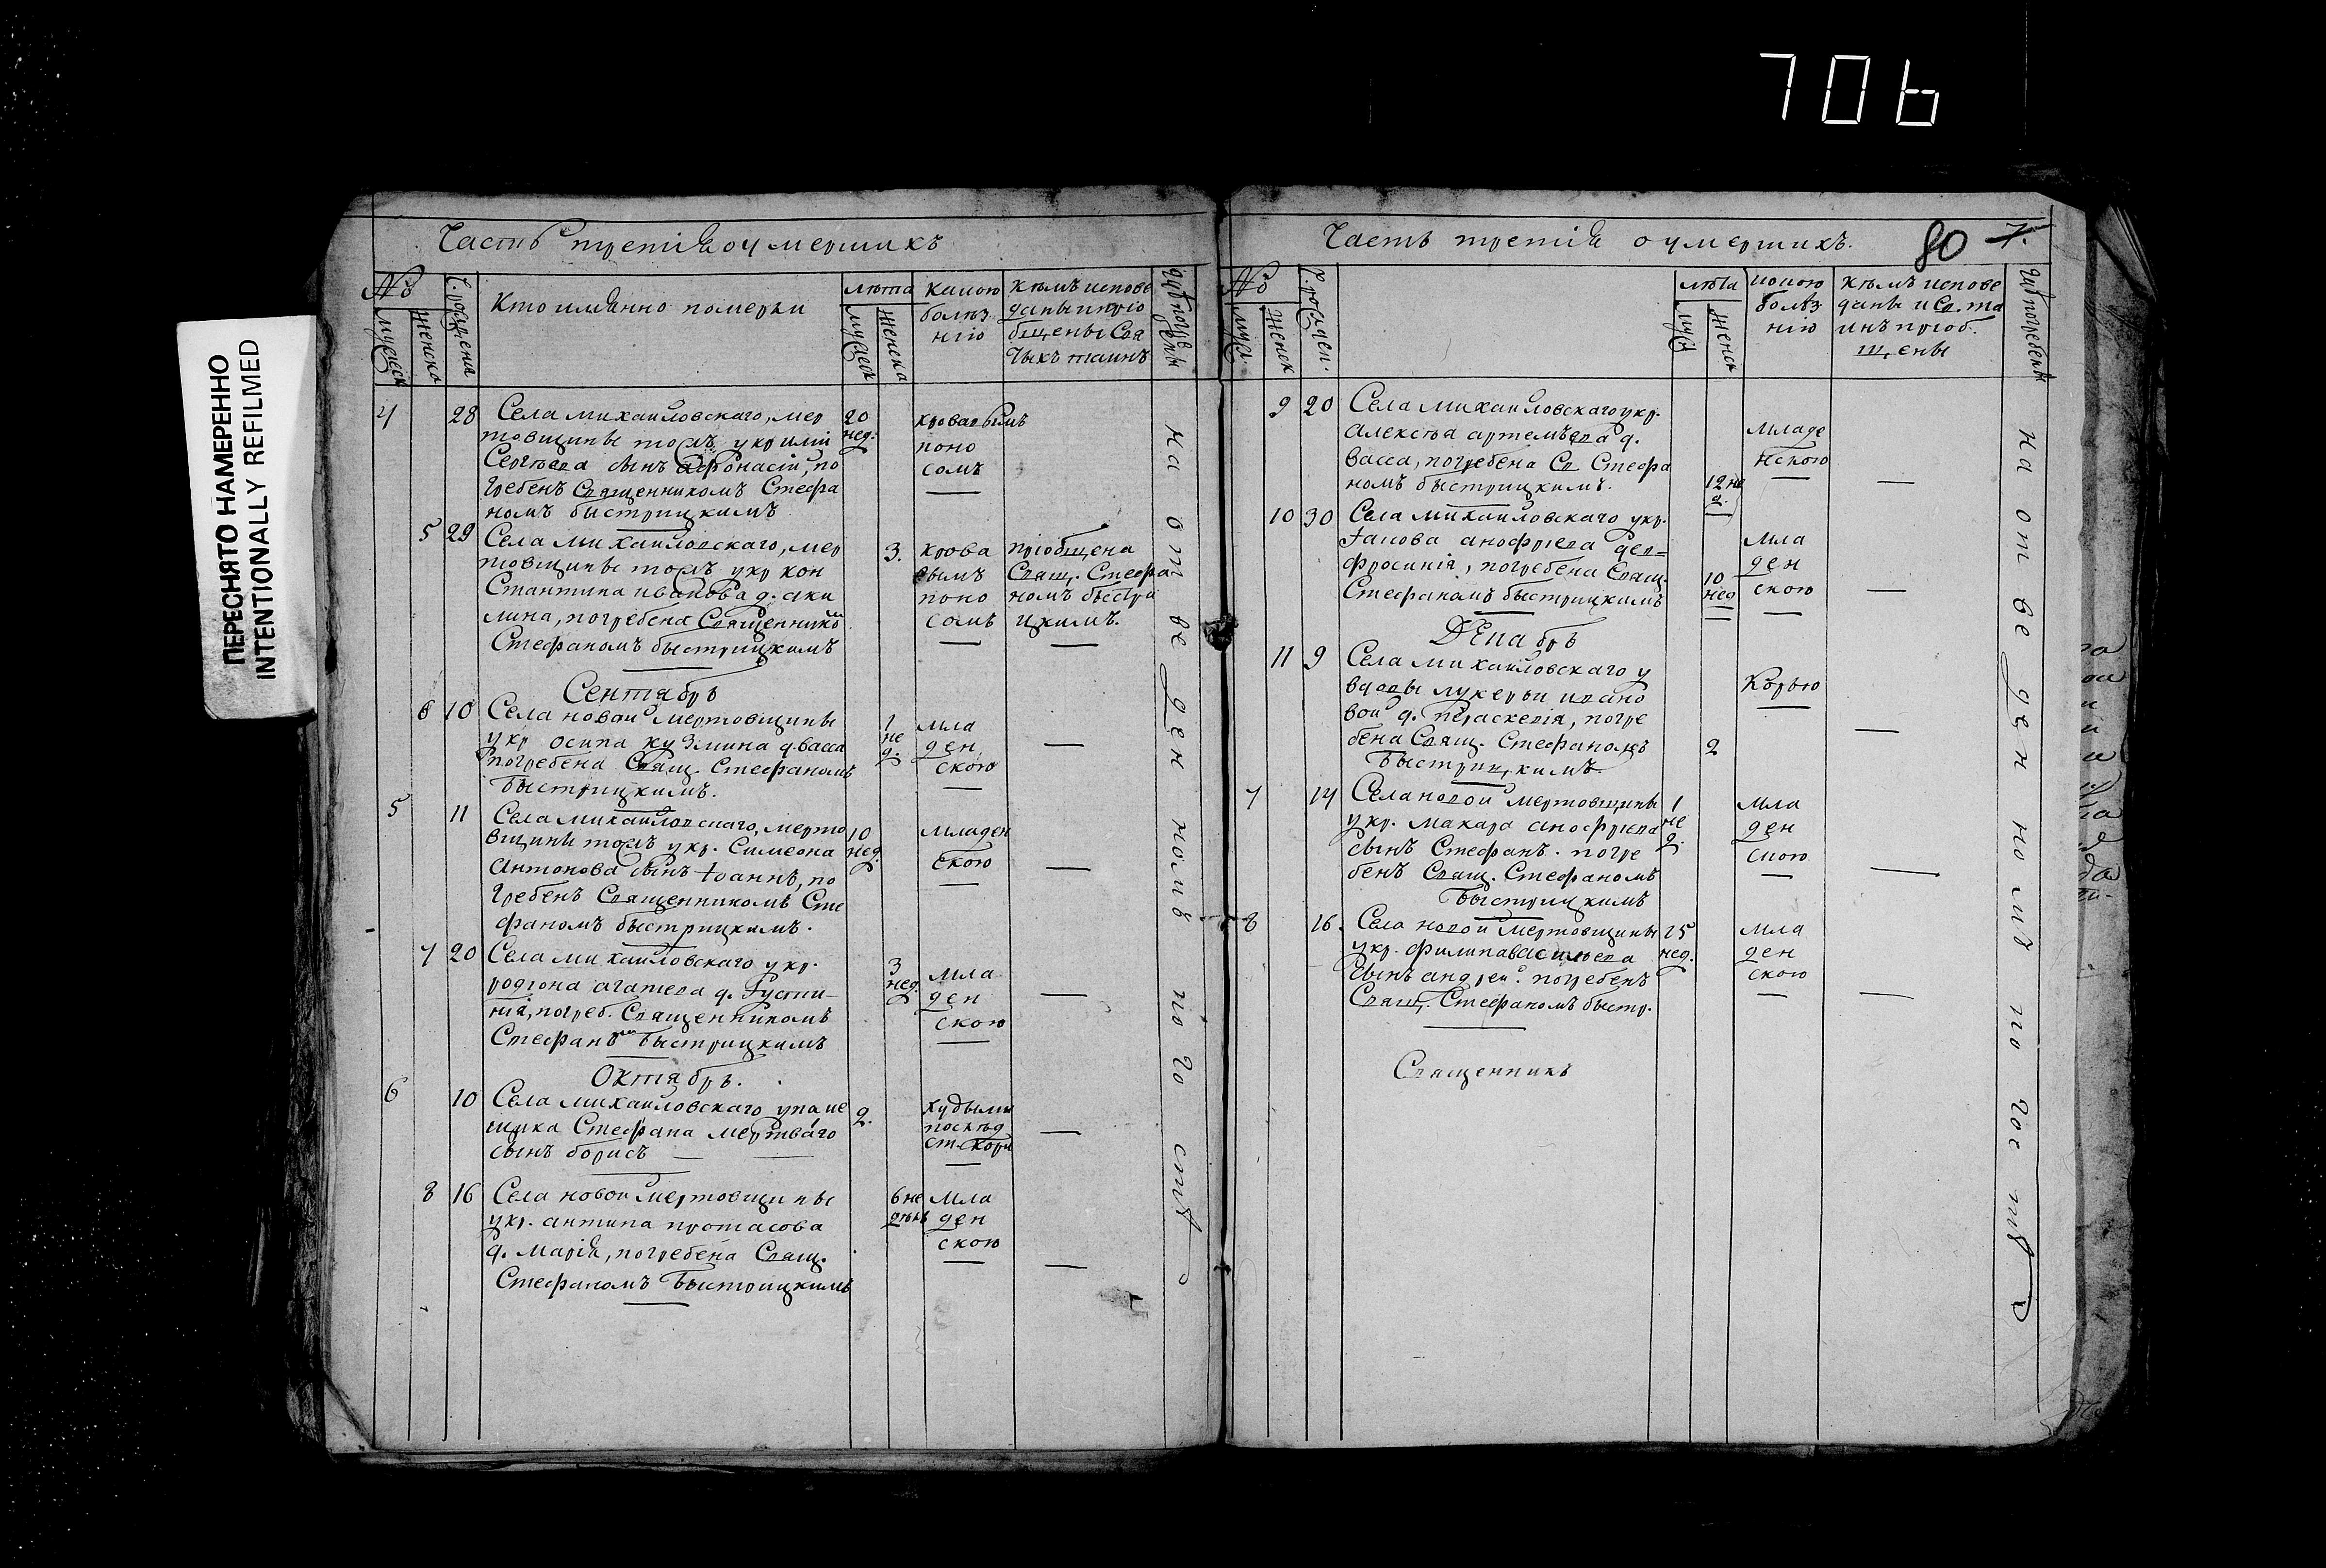 706
ПЕРЕСНЯТО НАМЕРЕННО
INTENTIONALLY REFILMED
Часть третія о умершихъ
№
мужеск
женско
Кто имѣнно померли
лѣта
мужеск
женска
какою
болѣз
нію
кѣмъ испове
даны и пріо
бщены Свя
тыхъ таинъ
4 28
Села михаиловскаго, мер
товщины тожъ укр
Сергѣева сынъ афонасіи, по
гребенъ Священникомъ Стефа
номъ быстрицкимъ
20
нед.
кровавымъ
поно
сомъ
5 29
Села михаиловскаго, мер
товщины тожъ укр кон
стантина иванова д. аки
лина, погребена Священнико
Стефаномъ быстрицкимъ
3.
крова
вымъ
поно
сомъ
пріобщена
Свящ. Стефа
номъ быстри
цкимъ.
Сентябрь
6 10
Села новои мертовщины
укр осипа кузмина д. васса
погребена Свящ. Стефаномъ
Быстрицкимъ.
1
не
д.
мла
ден
скою
5 11
Села михаиловскаго, мерто
вщины тожъ укр. Симеона
Антонова сынъ Іоаннъ, по
гребенъ Священникомъ Сте
фаномъ быстрицкимъ.
10
нед.
младен
скою
7 20
Села михаиловскаго укр.
родіона агапева д. Іусти-
нія, погреб. Священникомъ
Стефаномъ Быстрицкимъ
3
нед.
мла
ден
скою
Октябрь.
6 10
Села михаиловскаго упоме
щика Стефана мертваго
сынъ борисъ
2.
8 16
Села новои мертовщины
укр. антипа протасова
д. марія, погребена Свящ.
Стефаномъ Быстрицкимъ
6 не
дѣль
мла
ден
скою
на отведенномъ погостѣ
Часть третія о умершихъ.
80 7.
№
муж.
женск
лѣта
муж
женск
какою
болѣз
нію
кѣмъ испове
даны и Св. та
инъ приоб.
щены
9 20
Села михаиловскаго укр.
алексѣя артемьева д.
васса, погребена Св Стефа
номъ быстрицкимъ.
12 не
д.
младе
нскою
10 30
Села михаиловскаго укр.
Іакова анофріева д ев=
фросинія, погребена Свящ.
Стефаномъ быстрицкимъ
10
нед
мла
ден
скою
Декабрь
11 9
Села михаиловскаго у
вдовы лукерьи ивано
вои д. параскевія, погре
бена Свящ. Стефаномъ
Быстрицкимъ.
2
Корью
7 14
Села новои мертовщины
укр. макара анофріева
сынъ Стефанъ. погре
бенъ Свящ. Стефаномъ
Быстрицкимъ
1
не
д.
мла
ден
скою
8 16.
Села новои мертовщины
укр. филипа васильева
сынъ андреи. погребенъ
Свящ. Стефаномъ быстр.
25
нед.
мла
ден
скою
Священникъ
на отведенномъ погостѣ